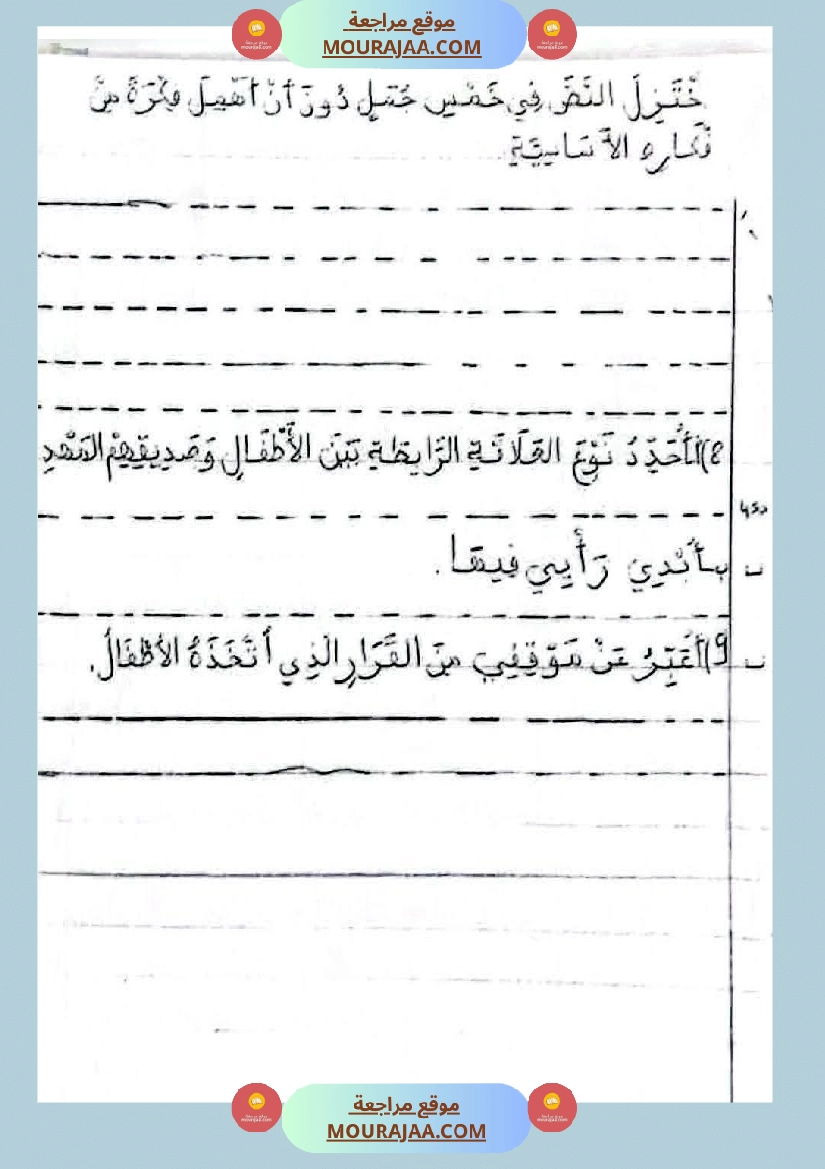 موقع مراجعة
MOURAJAA.COM
خْتَزِلَ النَّصَّ فِي خَمْسِ جُمَلٍ دُونَ أَنْ أُهْمِلَ فِكْرَةً مِنْ
فْكَارِهِ الأَسَاسِيَّةِ.
8) أ أُحَدِّدُ نَوْعَ العَلَاقَةِ الرَّابِطَةِ بَيْنَ الأَطْفَالِ وَصَدِيقِهِمْ
ب أُبْدِي رَأْيِي فِيهَا.
9) أُعَبِّرُ عَنْ مَوْقِفِي مِنَ القَرَارِ الَّذِي اتَّخَذَهُ الأَطْفَالُ.
موقع مراجعة
MOURAJAA.COM